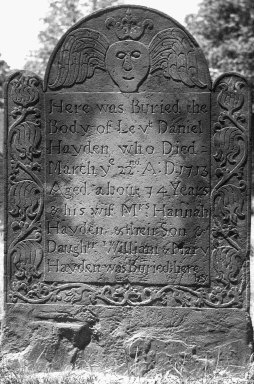 Here was Buried the
Body of Levt Daniel
Hayden who Died
March ye 22d A.D. 1713
Aged about 74 Years
& his wife Mrs Hannah
Hayden & their Son &
Daughtr William & Mary
Hayden was Buried here